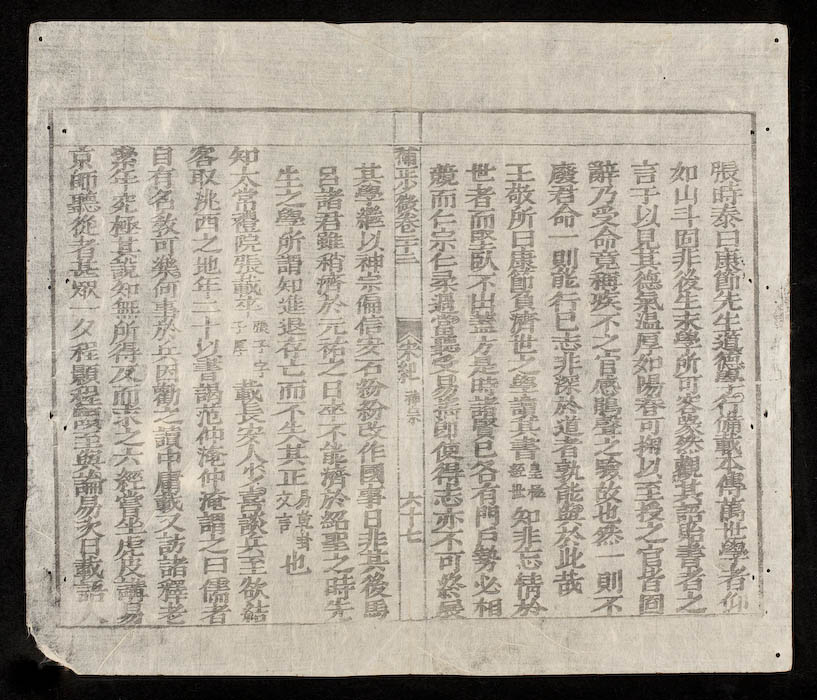 張時泰曰康節先生道德學行備載本傳萬世學者仰
如山斗固非後生末學所可容喙然觀其語貽書者之
言于以見其德氣溫厚如陽春可掬以至授之官皆固
辭乃受命竟稱疾不之官感鵑聲之驗故也然一則不
廢君命一則能行已志非深於道者孰能與於此哉
王敬所曰康節負濟世之學讀其書皇極經世知非忘情於
世者而堅臥不出蓋方是時諸賢已各有門戶勢必相
競而仁宗仁柔過當聽受易奪即使得志亦不可終展
補正少微卷二十三 宋紀 神宗 六十七
其學繼以神宗偏信安石紛紛改作國事日非其後馬
呂諸君雖稍濟於元祐之日卒不能濟於紹聖之時先
生之學所謂知進退存亡而不失其正易乾卦文言也
知太常禮院張載卒張子字子厚載長安人少喜談兵至欲結
客取洮西之地年二十以書謁范仲淹仲淹謂之曰儒者
自有名教可樂何事於兵因勸之讀中庸載又訪諸釋老
累年究極其說知無所得反而求之六經嘗坐虎皮講易
京師聽從者甚眾一夕程顥程頤至與論易次日載語人